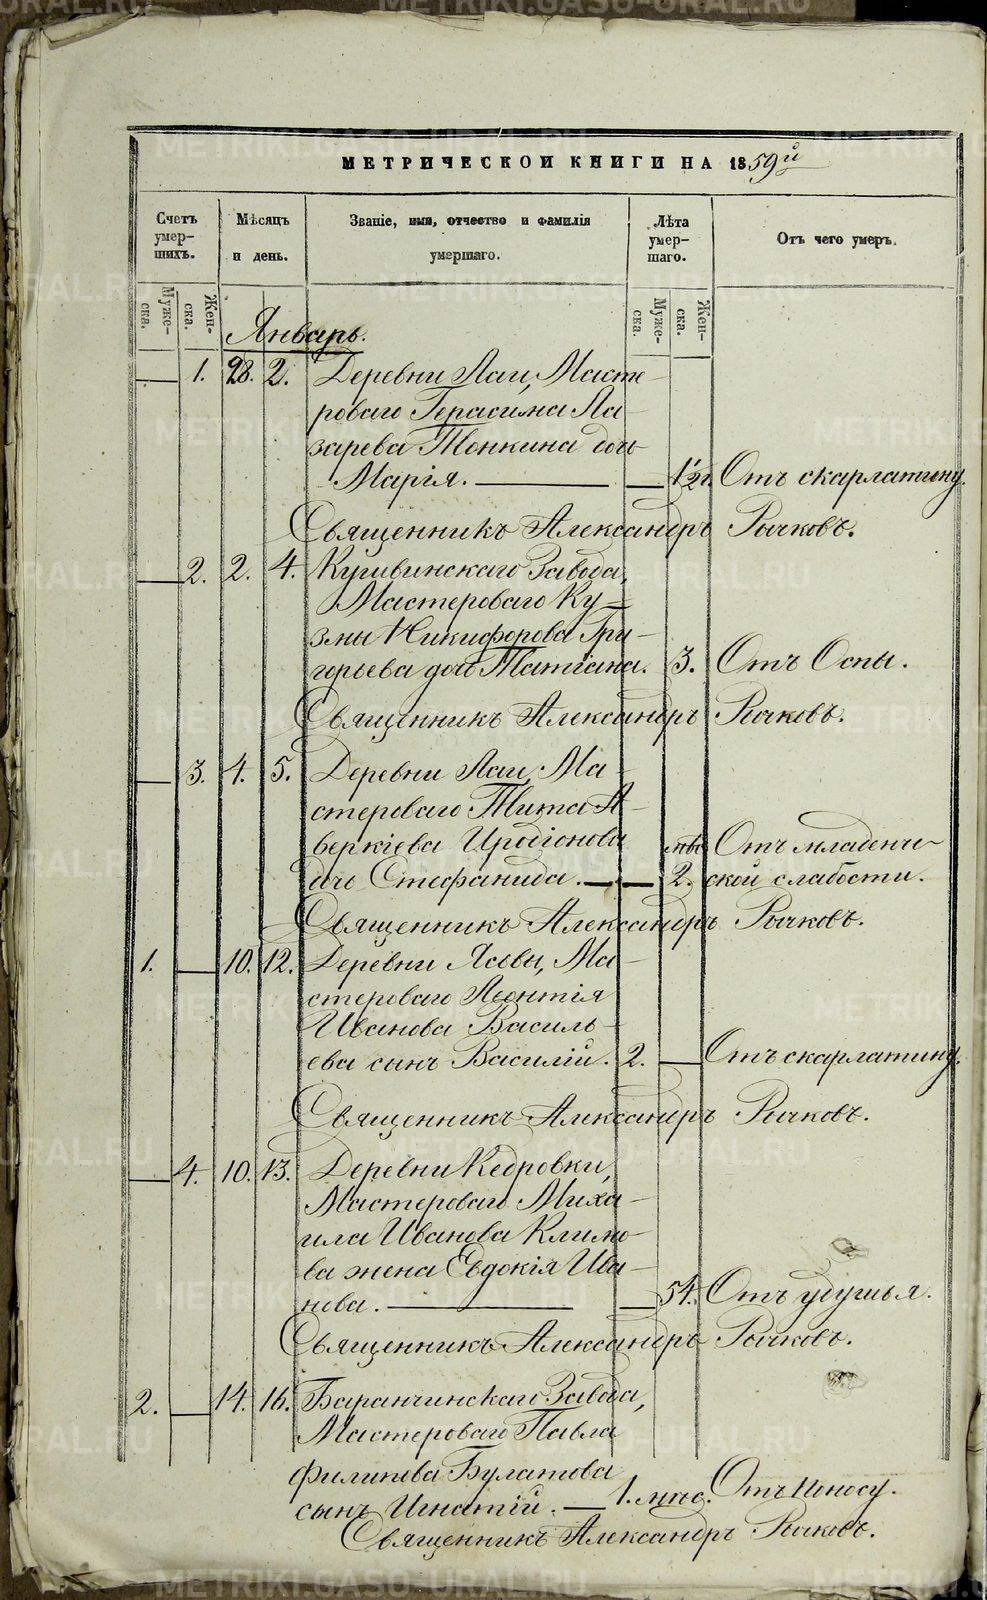 МЕТРИЧЕСКОЙ КНИГИ НА 1859й
Счетъ умер-шихъ.
Мѣсяцъ и день.
Званіе, имя, отчество и фамилія умершаго.
Лѣта умер-шаго.
Отъ чего умеръ.
Муже-ска.
Жен-ска.
Муже-ска.
Жен-ска.
Январь.
1. 28. 2. Деревни Лаи, Масте-
роваго Герасима Ла-
зарева Тонкина дочь
Марія. 1 1/2 г. Отъ скарлатину.
Священникъ Александръ Рычковъ.
2. 2. 4. Кушвинскаго Завода,
Мастероваго Ку-
змы Никифорова Гри-
горьева дочь Татіана. 3. Отъ Оспы.
Священникъ Александръ Рычковъ.
3. 4. 5. Деревни Лаи, Ма-
стероваго Тита А-
веркіева Иродіонова мѣс. Отъ младенче-
дочь Стефанида. 2. ской слабости.
Священникъ Александръ Рычковъ.
1. 10. 12. Деревни Ясьвы, Ма-
стероваго Леонтія
Иванова Василь-
ева сынъ Василій. 2. Отъ скарлатину.
Священникъ Александръ Рычковъ.
4. 10. 13. Деревни Кедровки,
Мастероваго Миха-
ила Иванова Климо-
ва жена Евдокія Ива-
нова. 54. Отъ удушья.
Священникъ Александръ Рычковъ.
2. 14. 16. Баранчинскаго Завода,
Мастероваго Павла
Филипова Булатова
сынъ Игнатій. 1. мѣс. Отъ Поносу.
Священникъ Александръ Рычковъ.
METRIKI.GASO-URAL.RU